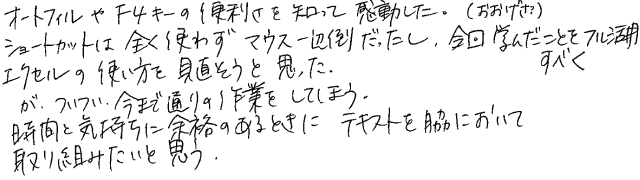 オートフィルやF4キーの便利さを知って感動した。(おおげさ?)
ショートカットは全く使わずマウス一辺倒だったし、今回学んだことをフル活用
すべく
エクセルの使い方を見直そうと思った。
が、ついつい今まで通りの作業をしてしまう。
時間と気持ちに余裕のあるときに テキストを脇において
取り組みたいと思う。